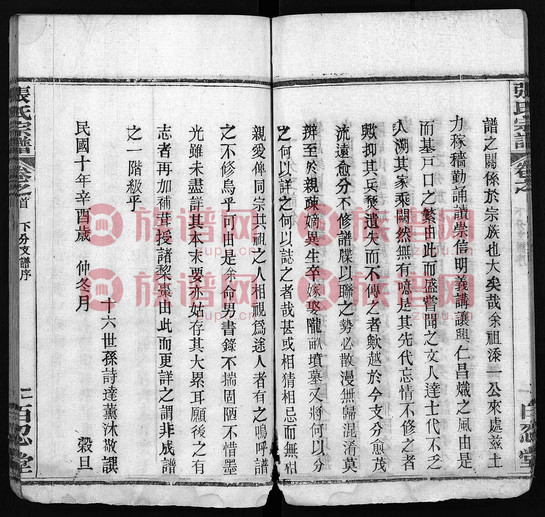 譜之關係於宗族也大矣哉余祖添一公來處兹土
力稼穡勤誦讀崇信明義講讓興仁昌熾之風由是
而基戶口之繁由此而盛嘗聞之文人達士代不乏
人溯其家乘闕然無有噫是其先代忘情不修之者
歟抑其兵燹遺失而不傳之者歟越於今支分愈茂
流遠愈分不修譜牒以聯之勢必散漫無歸混淆莫
辨至於親疎嫡異生卒嫁娶隴畝墳墓又將何以分
之何以詳之何以誌之者哉甚或相猜相忌而無相
親愛俾同宗共祖之人相視爲途人者有之嗚呼譜
之不修烏乎可由是余命男書錄不揣固陋不惜墨
光雖未盡詳其本末要亦姑存其大累耳願後之有
志者再加補葺授諸梨棗由此而更詳之謂非成譜
之一階級乎
十六世孫詩達薰沐敬譔
民國十年辛酉歲 仲冬月 穀旦
張氏宗譜 卷之首 下分支譜序 二 百忍堂
張氏宗譜 卷之 百忍堂
族谱网